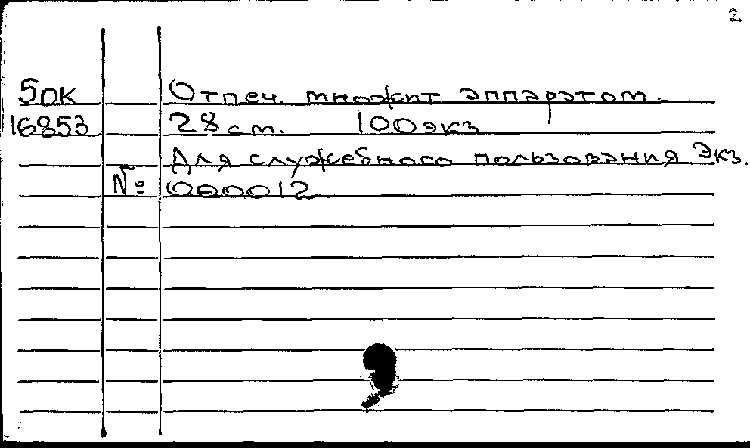 2
5ок Отпеч. множит аппаратом.
16853 28 см. 100 экз
Для служебного пользования Экз.
№ 000012